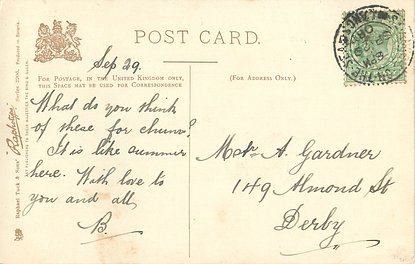 POST CARD.
Sep 29.
FOR POSTAGE, IN THE UNITED KINGDOM ONLY,
THIS SPACE MAY BE USED FOR CORRESPONDENCE
(FOR ADDRESS ONLY.)
What do you think
of these for chums?
It is like summer
here. With love to
you and all,
B.
A. Gardner
149 Almond St
Derby
Raphael Tuck & Sons'